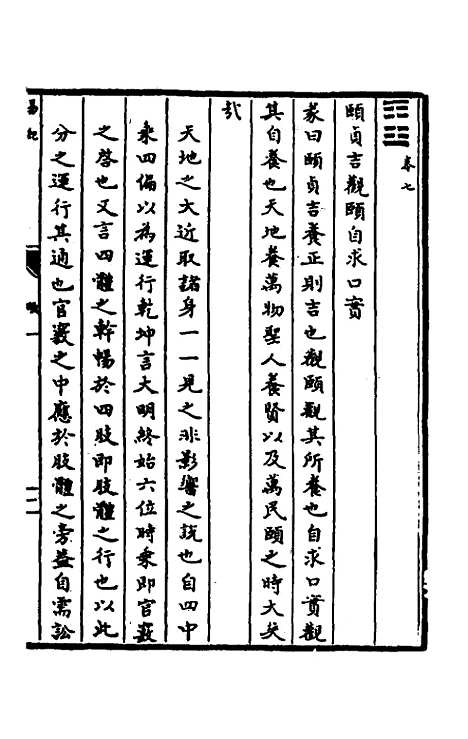 卷七
頤貞吉觀頤自求口實
彖曰頤貞吉養正則吉也觀頤觀其所養也自求口實觀
其自養也天地養萬物聖人養賢以及萬民頤之時大矣
哉
天地之大近取諸身一一見之非影響之說也自四中
乘四偏以為運行乾坤言大明終始六位時乘即官竅
之啓也又言四體之幹暢於四肢即肢體之行也以此
分之運行其通也官竅之中應於肢體之旁益自需訟